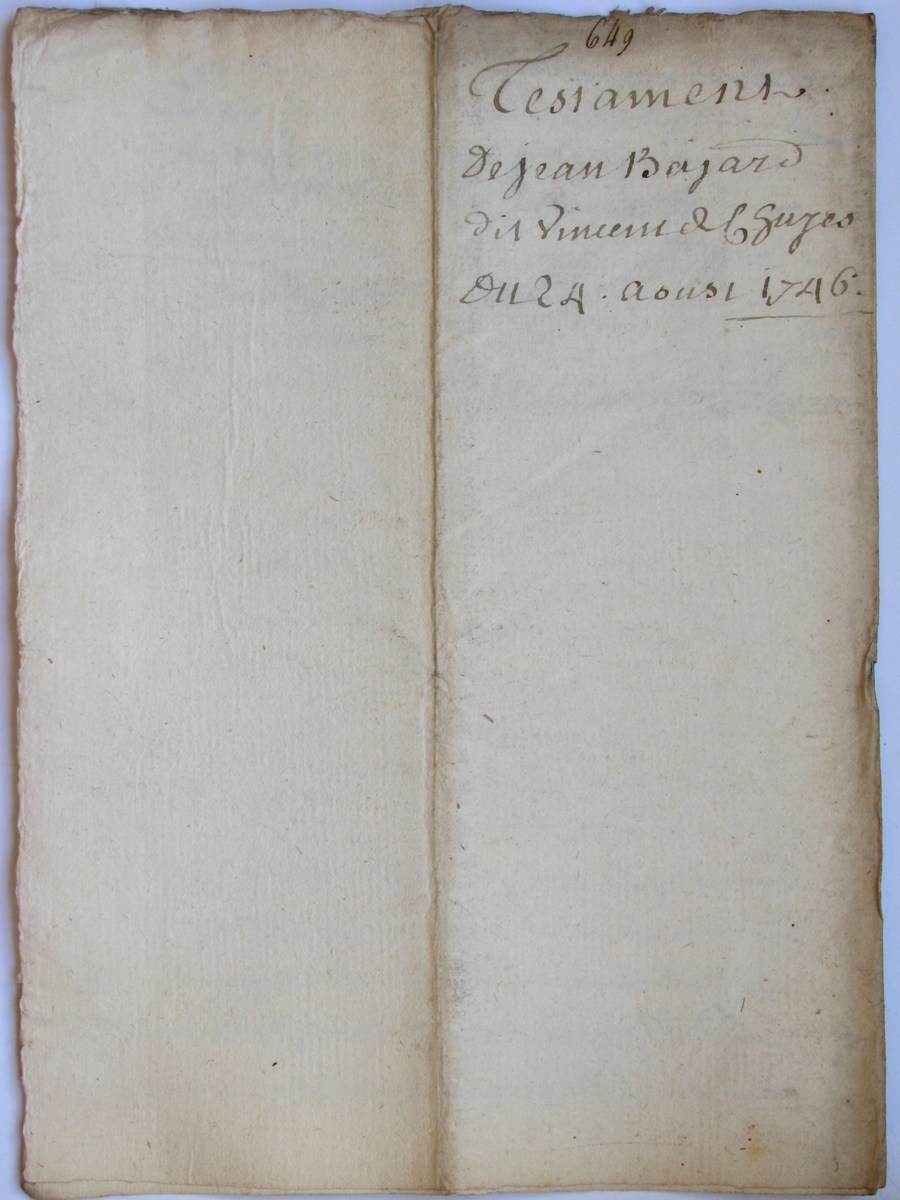 649
Testament
De jean Bajard
dit Vincent de Chuyes
Du 24. aoust 1746.